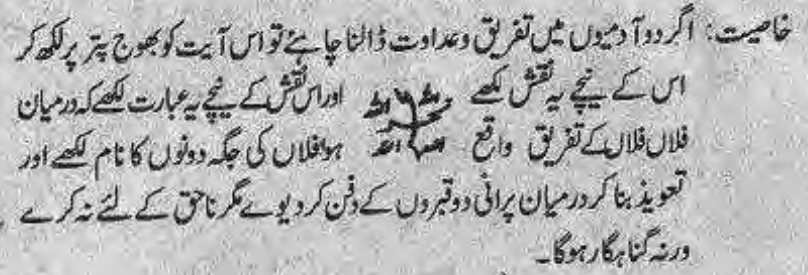 خاصیت: اگر دو آدمیوں میں تفریق وعداوت ڈالنا چاہئے تو اس آیت کو بھوج پتر پر لکھ کر
اس کے نیچے یہ نقش لکھے اور اس نقش کے نیچے یہ عبارت لکھے کہ درمیان
فلاں فلاں کے تفریق واقع ہو فلاں کی جگہ دونوں کا نام لکھے اور
تعویذ بنا کر درمیان پرانی دو قبروں کے دفن کر دیوے مگر ناحق کے لئے نہ کرے
ورنہ گناہگار ہوگا۔